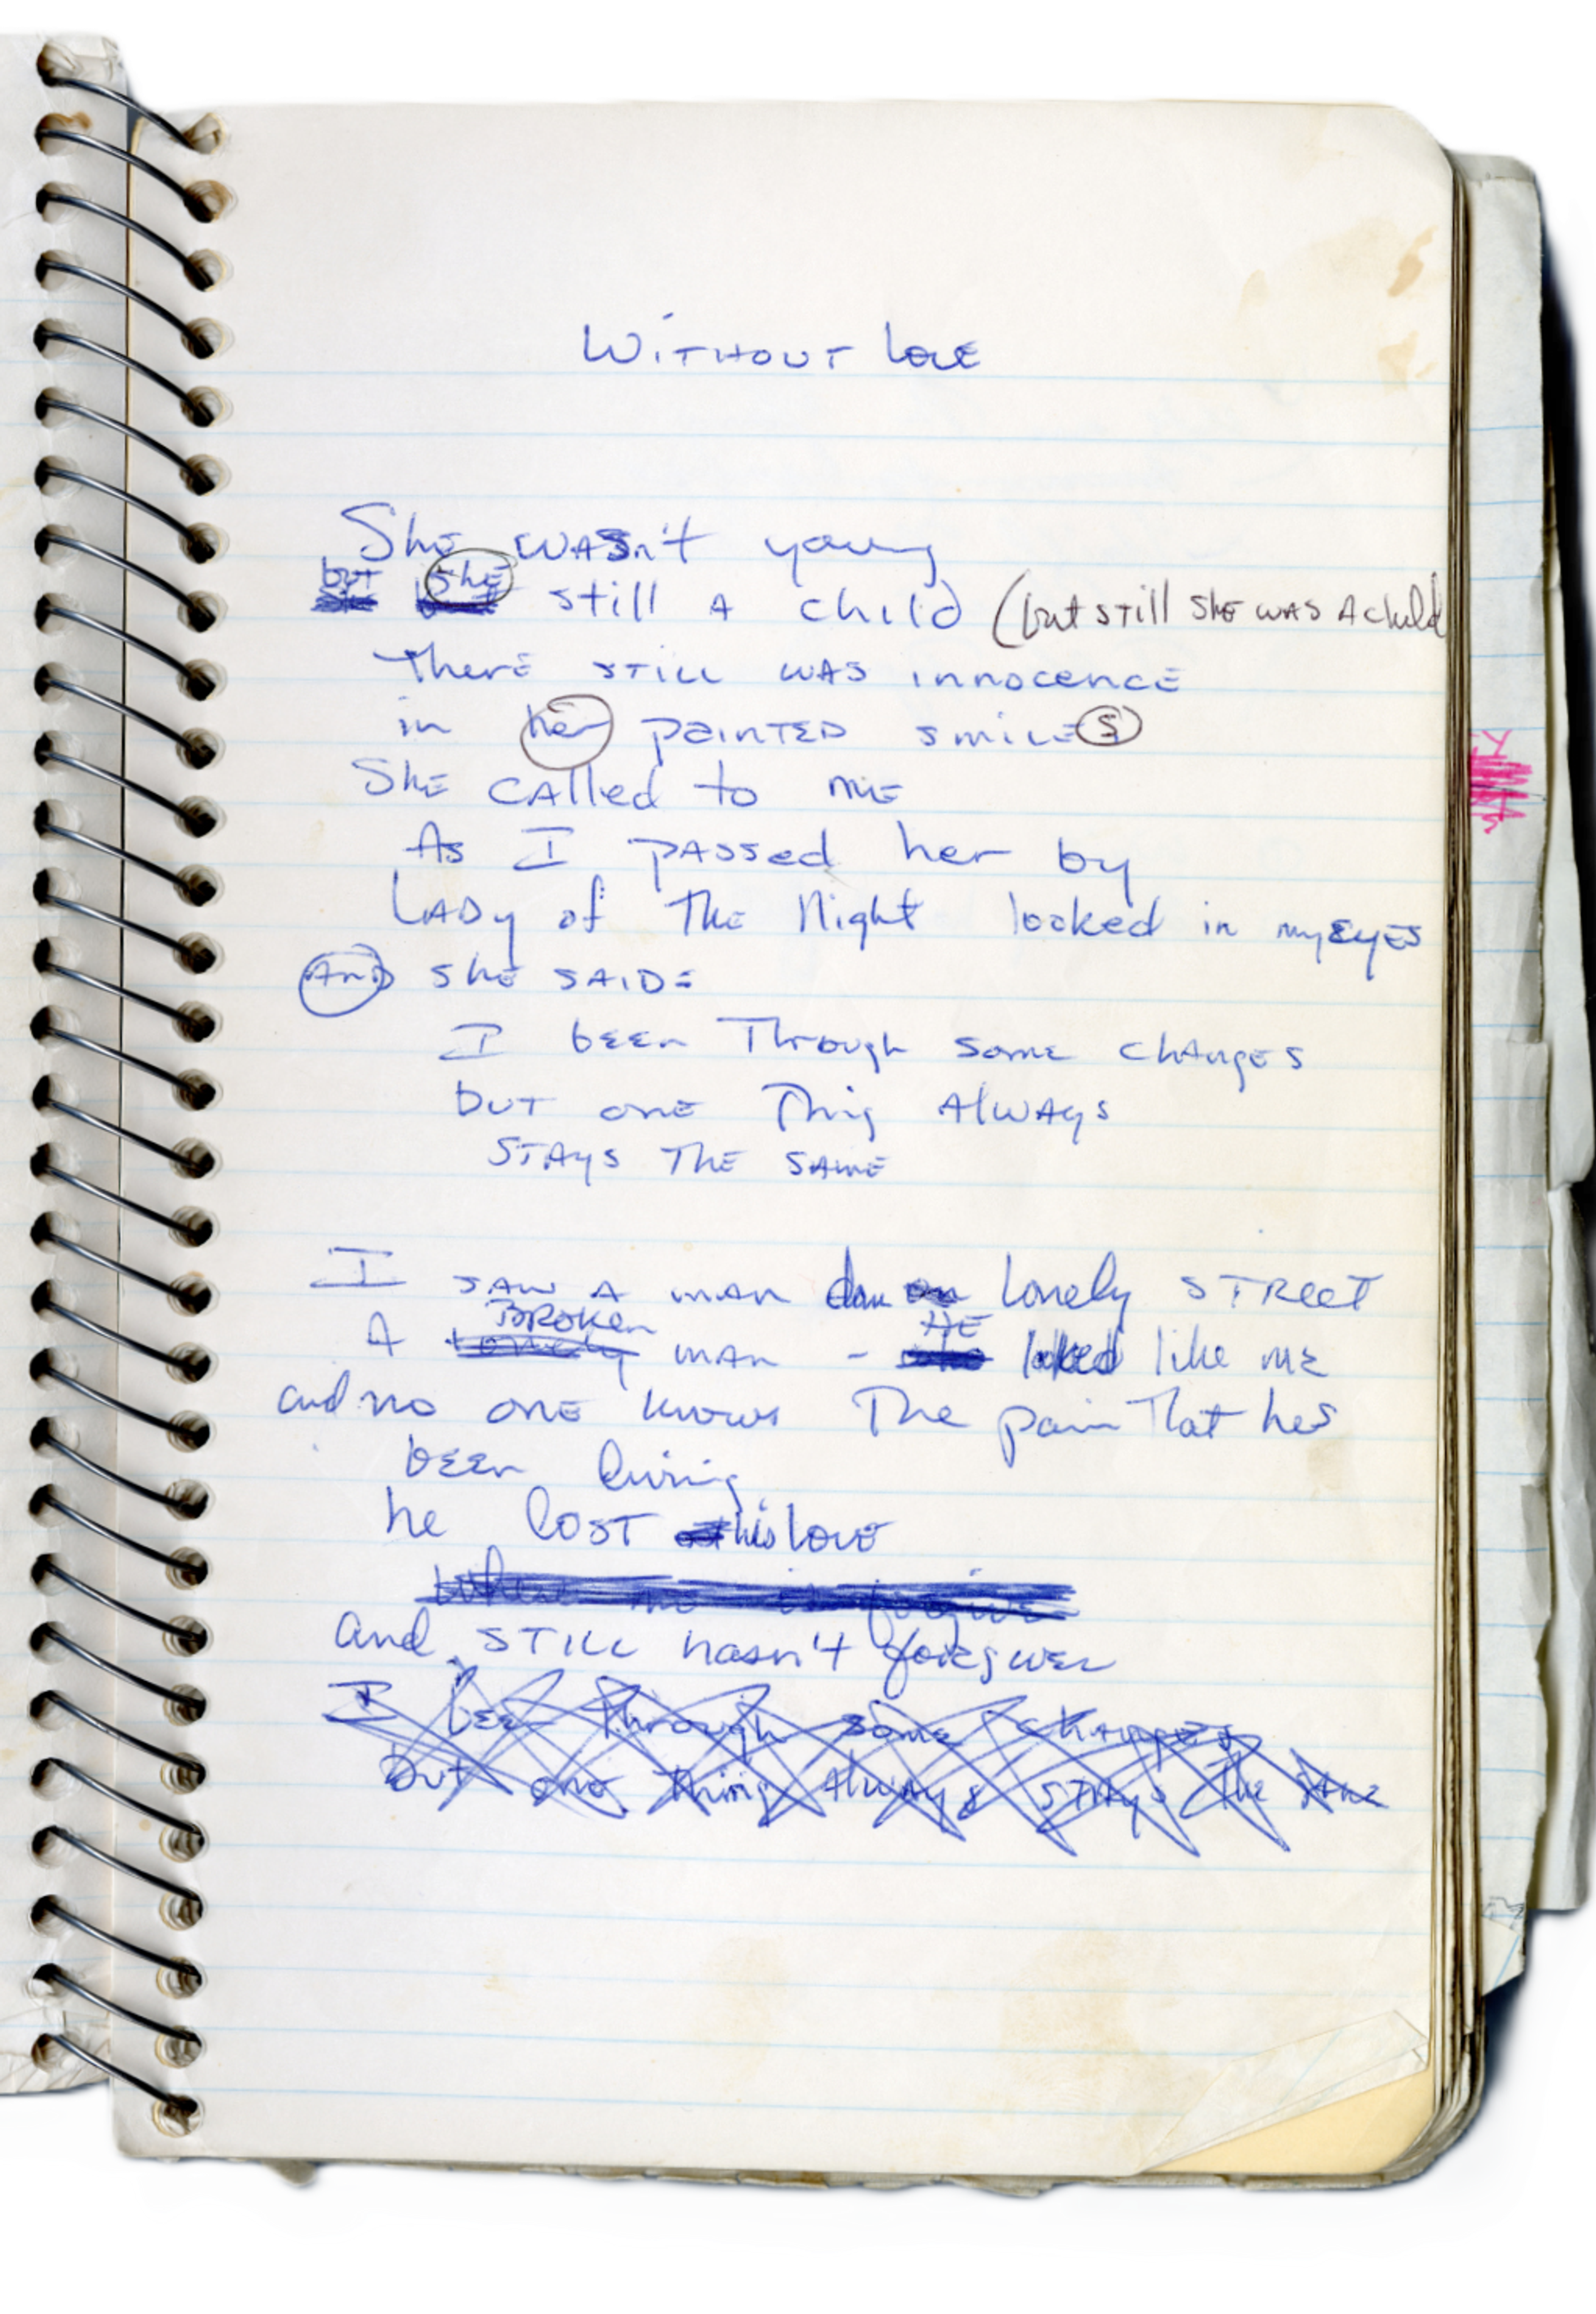 WITHOUT LOVE
She WASn't young
but she still A child (but still she was A child
There still was innocence
in her painted smiles
She called to me
As I passed her by
Lady of the Night looked in my eyes
And she said:
I been Through some changes
but one Thing Always
stays the same
I saw a man down on Lonely Street
BROKEN HE
A lonely man - who looked like me
and no one knows The pain That hes
been living
he lost his love
and still hasn't forgiven
I been through some changes
but one thing Always stays the same